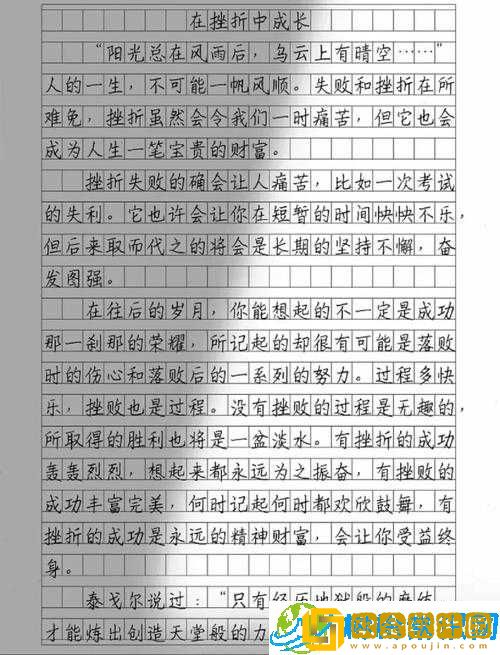 在挫折中成长
“阳光总在风雨后，乌云上有晴空……”
人的一生，不可能一帆风顺。失败和挫折在所
难免，挫折虽然会令我们一时痛苦，但它也会
成为人生一笔宝贵的财富。
挫折失败的确会让人痛苦，比如一次考试
的失利。它也许会让你在短暂的时间怏怏不乐，
但后来取而代之的将会是长期的坚持不懈，奋
发图强。
在往后的岁月，你能想起的不一定是成功
那一刹那的荣耀，所记起的却很有可能是落败
时的伤心和落败后的一系列的努力。过程多快
乐，挫败也是过程。没有挫败的过程是无趣的，
所取得的胜利也将是一盆淡水。有挫折的成功
轰轰烈烈，想起来都永远为之振奋，有挫败的
成功丰富完美，何时记起何时都欢欣鼓舞，有
挫折的成功是永远的精神财富，会让你受益终
身。
泰戈尔说过：“只有经历地狱般的磨练，
才能炼出创造天堂般的力
www.apoujin.com